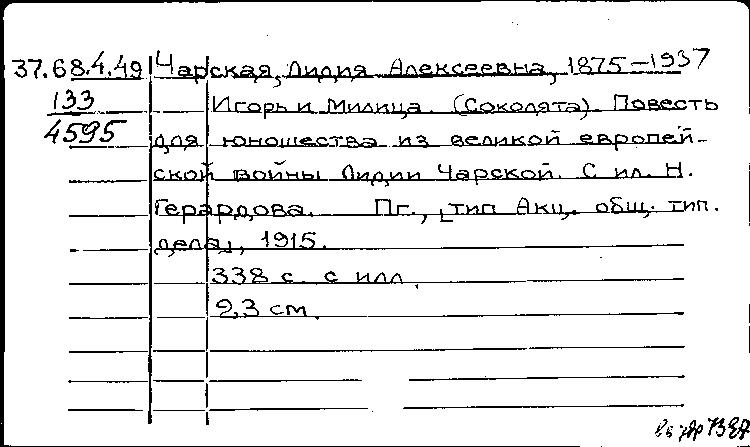 37.68.4.49 Чарская, Лидия Алексеевна, 1875-1937
133 Игорь и Милица. (Соколята). Повесть
4595 для юношества из великой европей-
ской войны Лидии Чарской. С ил. Н.
Герардова. Пг., [тип. Акц. общ. тип.
дела], 1915.
338 с. с илл.
23 см.